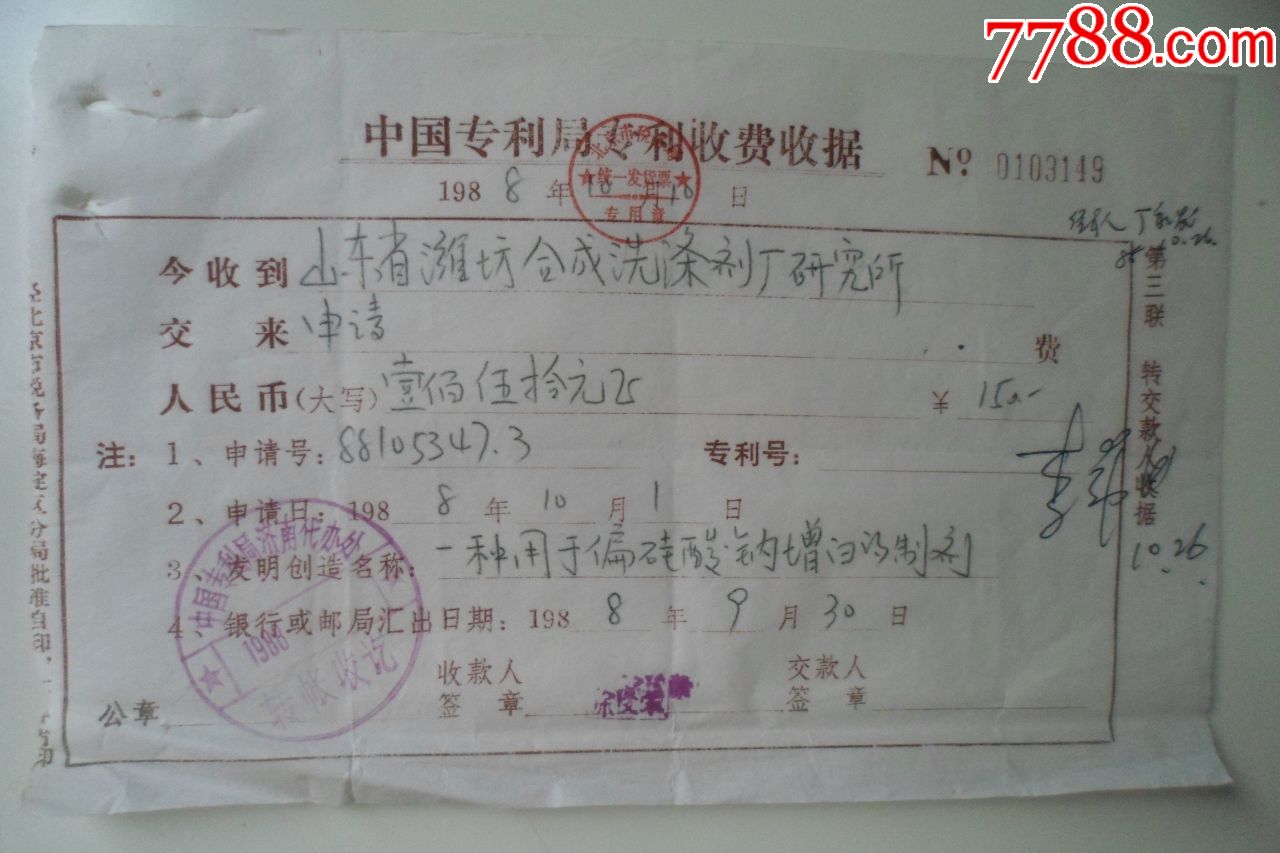 7788.com
中国专利局专利收费收据 № 0103149
北京市税务局
★统一发货票★
专用章
198 8 年 10 月 10 日
经手人 丁
10.26.
今收到 山东省潍坊合成洗涤剂厂研究所
交 来 申请 费
人民币(大写) 壹佰伍拾元正 ¥ 150-
注: 1、申请号: 88105347.3 专利号:
2、申请日: 198 8 年 10 月 1 日
3、发明创造名称: 一种用于偏硅酸钠增白的制剂
4、银行或邮局汇出日期: 198 8 年 9 月 30 日
收款人 交款人
公章 签 章 签 章
中国专利局济南代办处
1988
转帐收讫
第三联 转交款人收据
10.26.
北京市税务局海淀区分局批准自印,